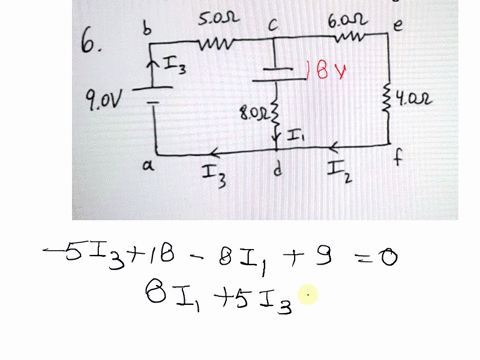 6.
b 5.0Ω c 6.0Ω e
I₃
9.0V 18V
8.0Ω 4.0Ω
I₁
a I₃ d I₂ f
-5I₃+18 - 8I₁ + 9 = 0
8I₁ +5I₃